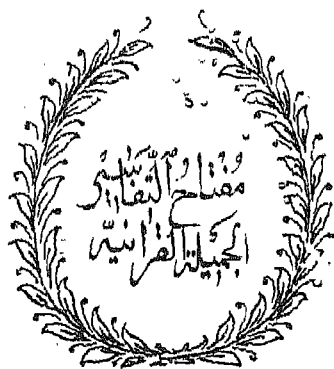 مفتاح التفاسير
الجميلة القرانية